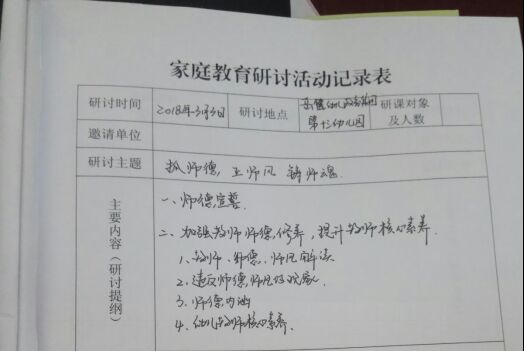 家庭教育研讨活动记录表
研讨时间 2018年3月3日 研讨地点 幼儿教育集团 第十三幼儿园 研课对象及人数
邀请单位
研讨主题 抓师德，正师风 铸师魂
主要内容（研讨提纲）
一、师德宣誓
二、加强教师师德修养，提升教师核心素养.
1、教师、师德、师风解读
2、违反师德师风
3、师德内涵
4、幼儿教师核心素养.